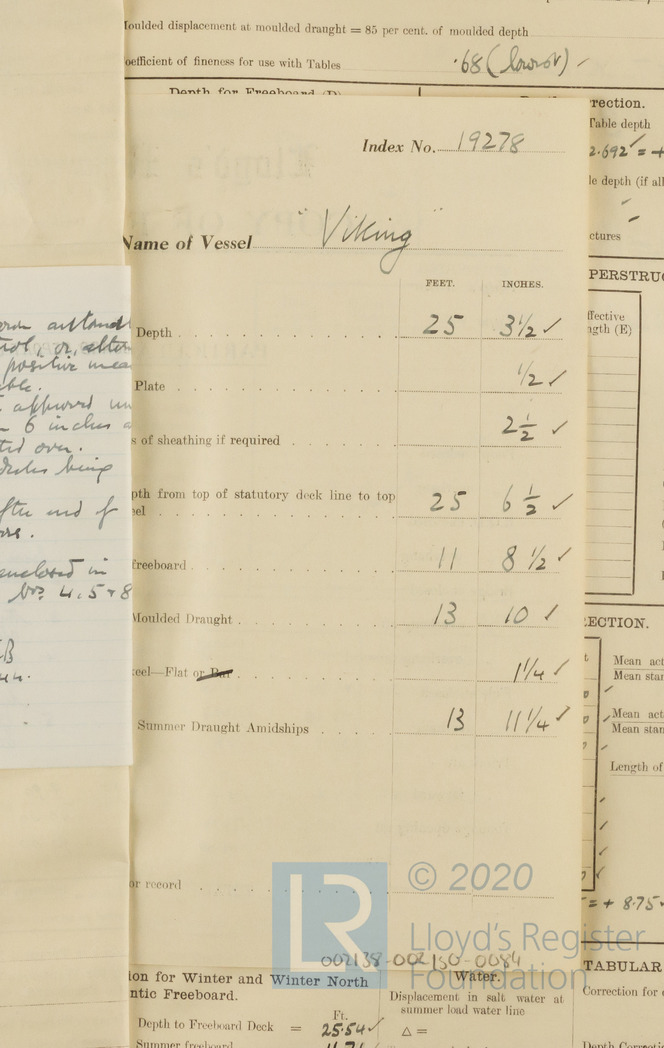 Moulded displacement at moulded draught = 85 per cent. of moulded depth
oefficient of fineness for use with Tables ·68 (lowest)
Depth for Freeboard (D)
rection.
Table depth
2.692 = +
le depth (if all
ctures
Index No. 19278
Name of Vessel "Viking"
FEET. INCHES.
Depth 25 3½ ✓
Plate ½ ✓
s of sheathing if required 2½ ✓
pth from top of statutory deck line to top
eel 25 6½ ✓
freeboard 11 8½ ✓
Moulded Draught 13 10 ✓
eel—Flat or Bar 1¼ ✓
Summer Draught Amidships 13 11¼ ✓
or record
positive
approved
6 inches
being
end of
enclosed in
4, 5 + 8
PERSTRUC
ffective
ngth (E)
ECTION.
Mean act
Mean stan
Mean act
Mean stan
Length of
= + 8.75
© 2020
LR
Lloyd's Register
Foundation
002138-002150-0084
ion for Winter and Winter North
ntic Freeboard.
Ft.
Depth to Freeboard Deck = 25.54 ✓
Summer freeboard
Water.
Displacement in salt water at
summer load water line
△ =
TABULAR
Correction for
Depth Correcti